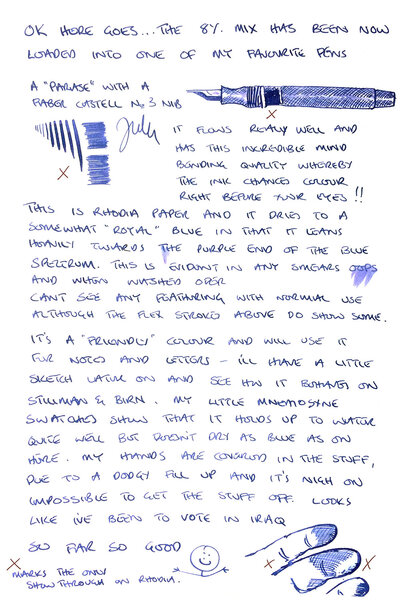 OK HERE GOES... THE 8Y. MIX HAS BEEN NOW
LOADED INTO ONE OF MY FAVOURITE PENS
A "PARASE" WITH A
FABER CASTELL No 3 NIB
IT FLOWS REALLY WELL AND
HAS THIS INCREDIBLE MIND
BENDING QUALITY WHEREBY
THE INK CHANGES COLOUR
RIGHT BEFORE YOUR EYES!!
THIS IS RHODIA PAPER AND IT DRIES TO A
SOMEWHAT "ROYAL" BLUE IN THAT IT LEANS
HEAVILY TOWARDS THE PURPLE END OF THE BLUE
SPECTRUM. THIS IS EVIDENT IN ANY SMEARS OOPS
AND WHEN WASHED OVER
CAN'T SEE ANY FEATHERING WITH NORMAL USE
ALTHOUGH THE FLEX STROKES ABOVE DO SHOW SOME.
IT'S A "FRIENDLY" COLOUR AND WILL USE IT
FOR NOTES AND LETTERS - I'LL HAVE A LITTLE
SKETCH LATER ON AND SEE HOW IT BEHAVES ON
STILLMAN & BIRN. MY LITTLE MNEMOSYNE
SWATCHES SHOW THAT IT HOLDS UP TO WATER
QUITE WELL BUT DOESN'T DRY AS BLUE AS ON
HERE. MY HANDS ARE COVERED IN THE STUFF,
DUE TO A DODGY FILL UP AND IT'S NIGH ON
IMPOSSIBLE TO GET THE STUFF OFF. LOOKS
LIKE I'VE BEEN TO VOTE IN IRAQ
SO FAR SO GOOD
X MARKS THE ONLY
SHOW THROUGH ON RHODIA.